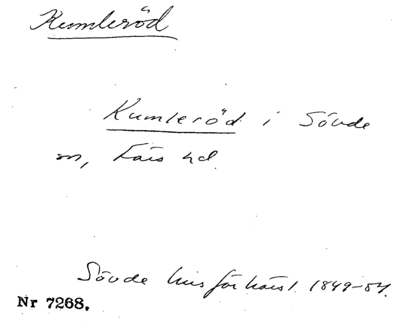 Kumleröd
Kumleröd i Sövde
sn, Färs hd.
Sövde husförhörsl. 1849-54.
Nr 7268.